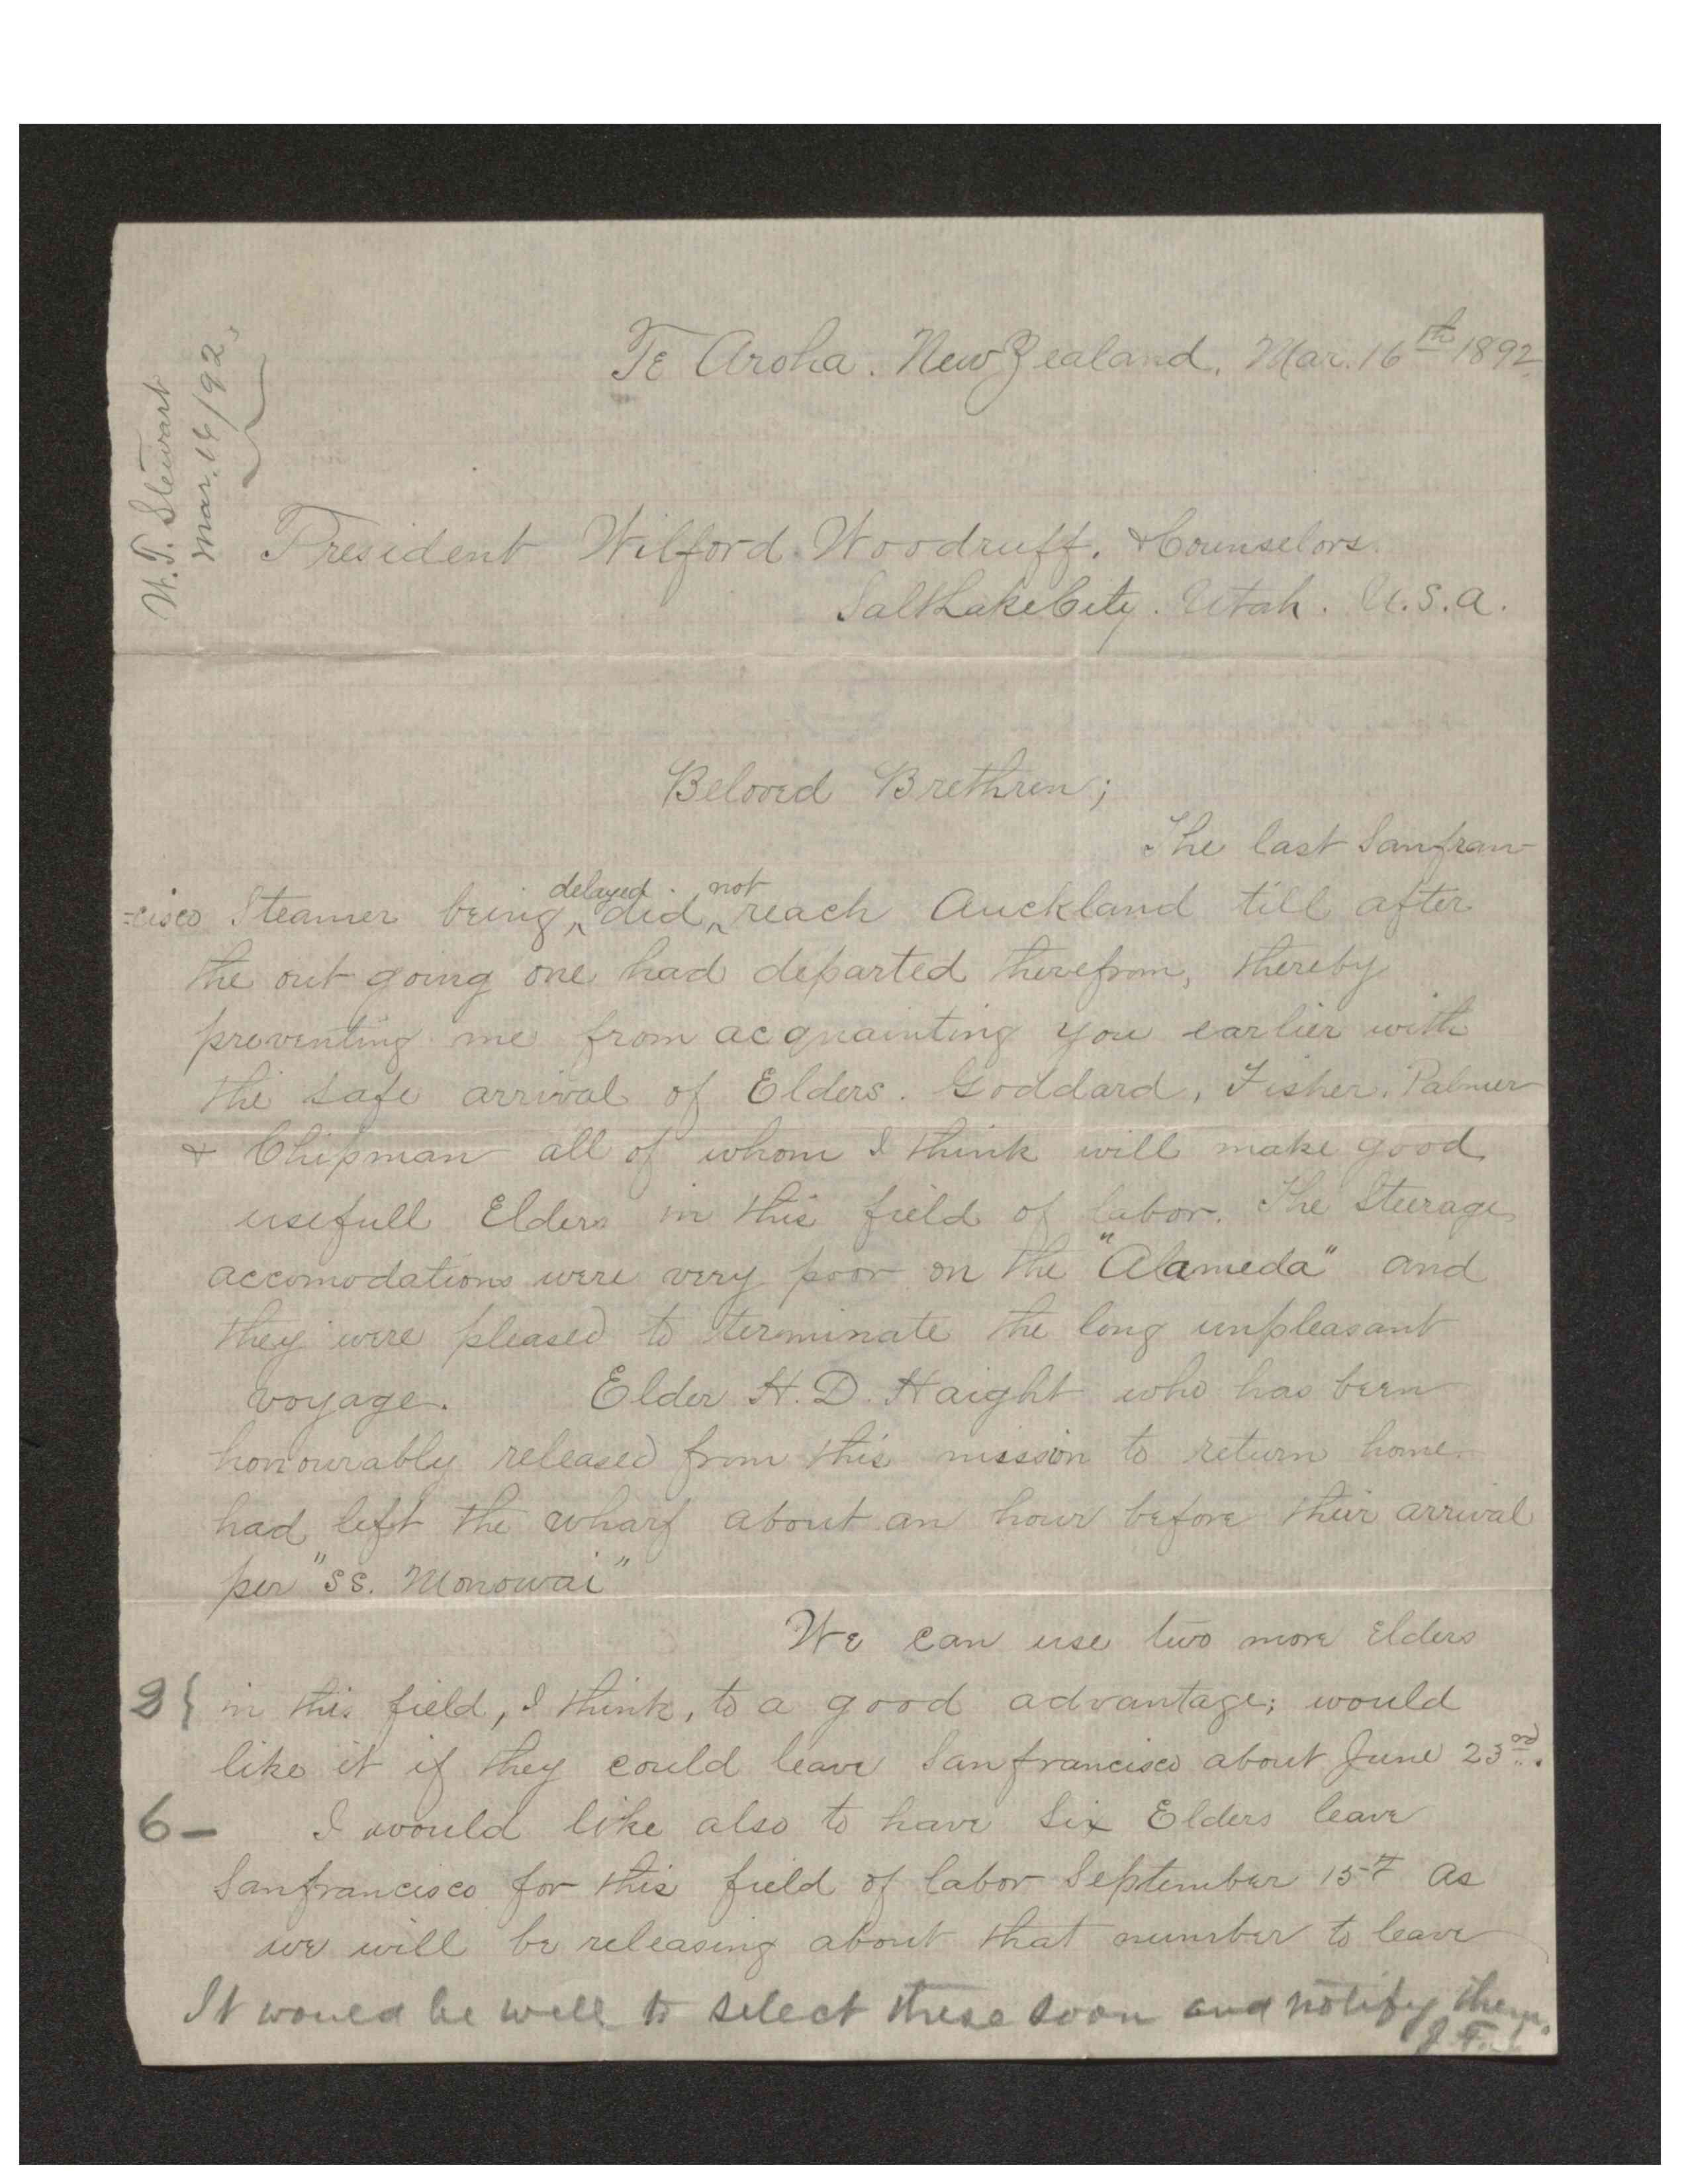 W. T. Stewart
Mar. 16/92
Te Aroha. New Zealand. Mar. 16th 1892
President Wilford Woodruff. & Counselors.
Salt Lake City. Utah. U.S.A.
Beloved Brethren;
The last Sanfran-
=cisco Steamer being delayed did not reach Auckland till after
the out going one had departed therefrom, thereby
preventing me from acquainting you earlier with
the safe arrival of Elders. Goddard, Fisher, Palmer
& Chipman all of whom I think will make good
usefull Elders in this field of labor. The Steerage
accomodations were very poor on the "Alameda" and
they were pleased to terminate the long unpleasant
voyage. Elder H. D. Haight who has been
honourably released from this mission to return home
had left the wharf about an hour before their arrival
per "SS. Monowai"
We can use two more Elders
2{ in this field, I think, to a good advantage; would
like it if they could leave Sanfrancisco about June 23rd.
6— I would like also to have six Elders leave
Sanfrancisco for this field of labor September 15th as
we will be releasing about that number to leave
It would be well to select these soon and notify them.
J. F. S.